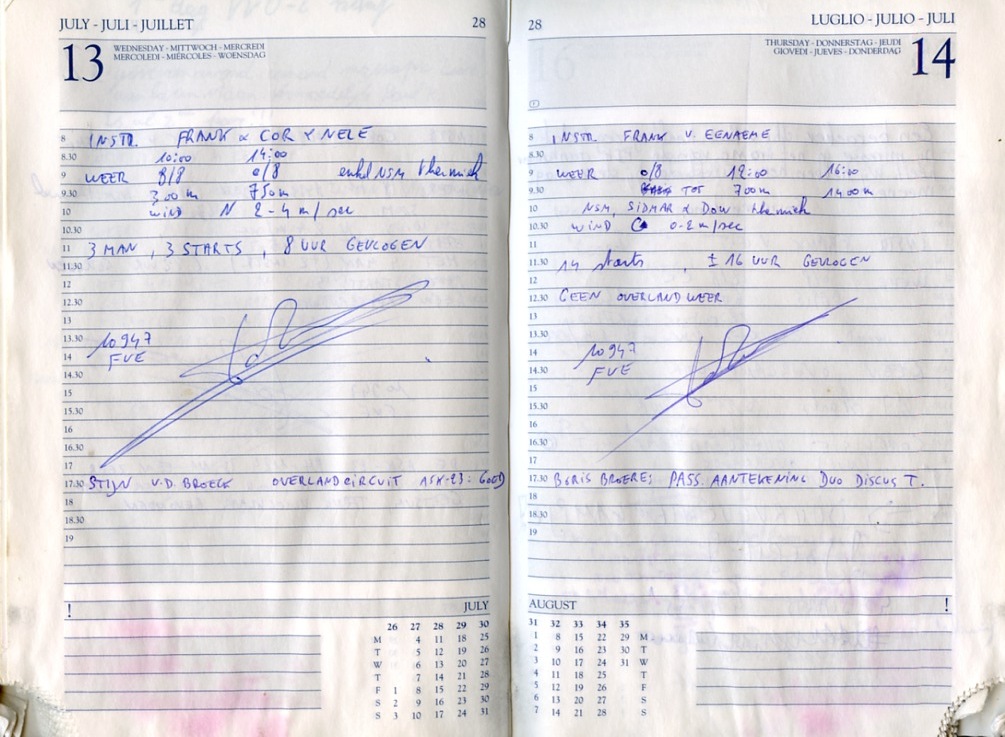 JULY - JULI - JUILLET 28
13 WEDNESDAY - MITTWOCH - MERCREDI
MERCOLEDI - MIÉRCOLES - WOENSDAG
8 INSTR. FRANK & COR & NELE
8.30 10:00 14:00
9 WEER 8/8 0/8 enkel NSM thermiek
9.30 300 m 750m
10 WIND N 2-4 m/sec
10.30
11 3 MAN, 3 STARTS, 8 UUR GEVLOGEN
11.30
12
12.30
13
13.30 10947
14 FVE
14.30
15
15.30
16
16.30
17
17.30 STIJN V.D. BROECK OVERLANDCIRCUIT ASK-23: GOED
18
18.30
19
! JULY
26 27 28 29 30
M 4 11 18 25
T 5 12 19 26
W 6 13 20 27
T 7 14 21 28
F 1 8 15 22 29
S 2 9 16 23 30
S 3 10 17 24 31
28 LUGLIO - JULIO - JULI
THURSDAY - DONNERSTAG - JEUDI 14
GIOVEDI - JUEVES - DONDERDAG
8 INSTR. FRANK V. EENAEME
8.30
9 WEER 0/8 12:00 16:00
9.30 TOT 700m 1400m
10 NSM, SIDMAR & DOW thermiek
10.30 WIND 0-2 m/sec
11
11.30 14 starts, ± 16 UUR GEVLOGEN
12
12.30 GEEN OVERLANDWEER
13
13.30 10947
14 FVE
14.30
15
15.30
16
16.30
17
17.30 BORIS BROERE: PASS. AANTEKENING DUO DISCUS T.
18
18.30
19
AUGUST !
31 32 33 34 35
1 8 15 22 29 M
2 9 16 23 30 T
3 10 17 24 31 W
4 11 18 25 T
5 12 19 26 F
6 13 20 27 S
7 14 21 28 S